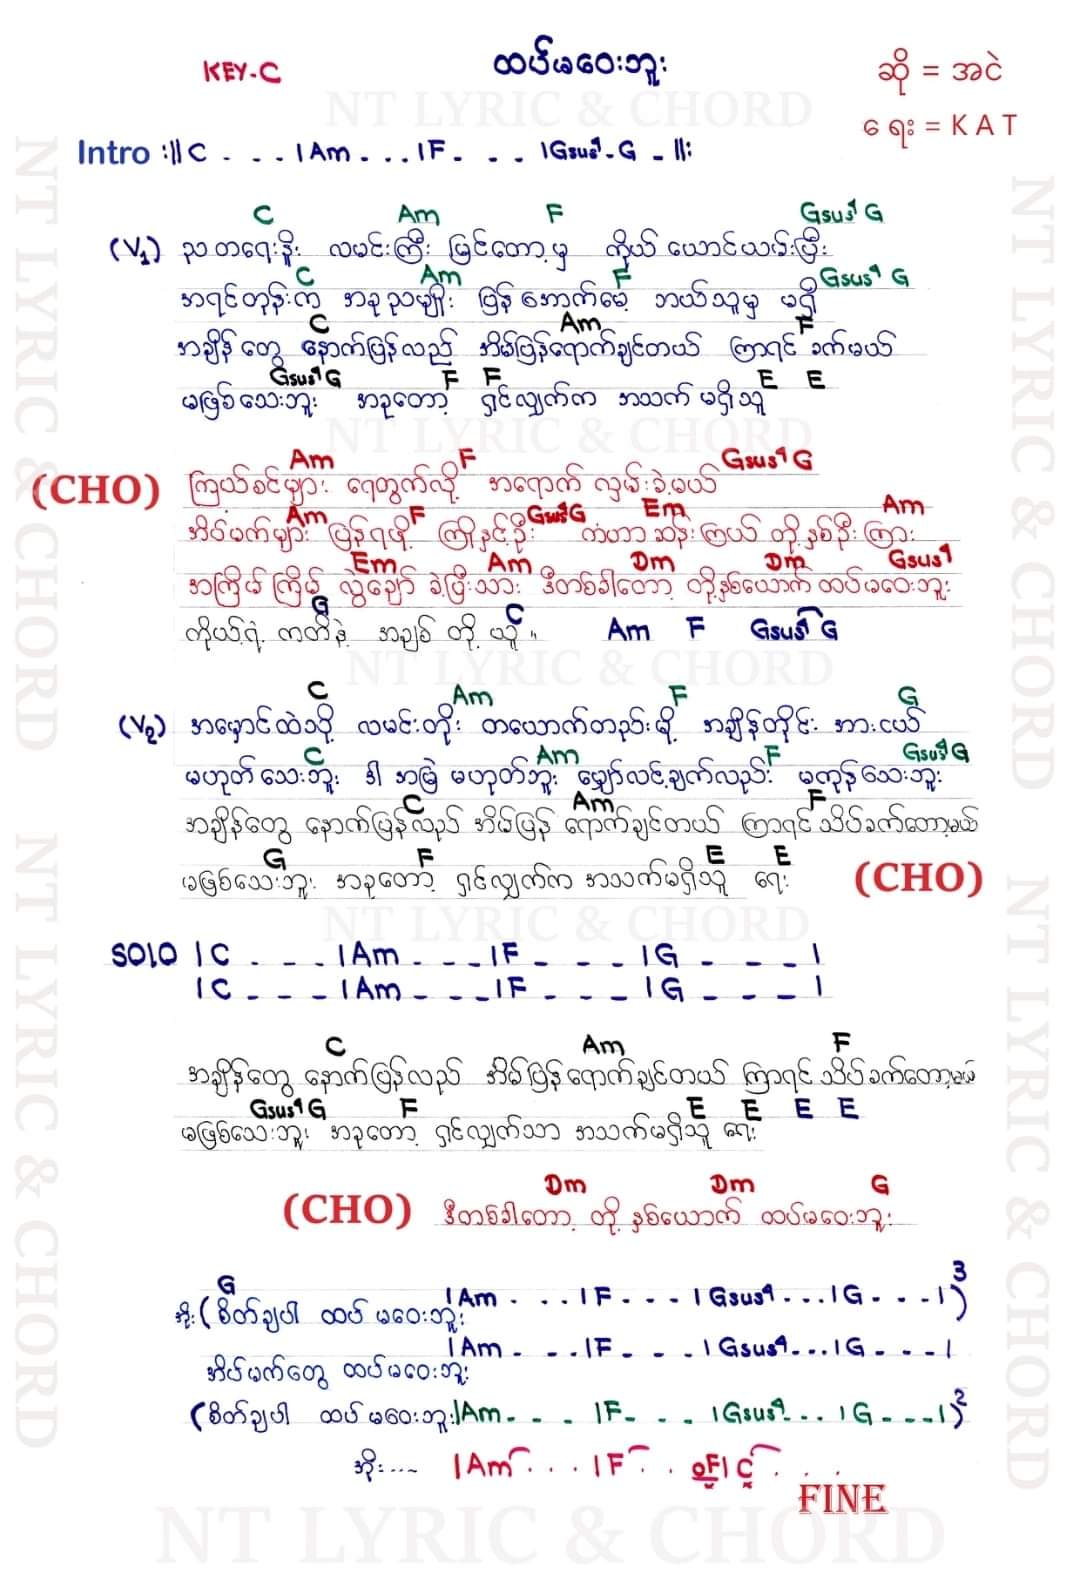 KEY-C
ထပ်မဝေးဘူး
ဆို = အငဲ
ရေး = K A T
Intro :|| C . - - | Am . . . | F - . - - | Gsus4 - G - ||:
C Am F Gsus4 G
(V1) ညတရေးနိုး လမင်းကြီး မြင်တော့မှ ကိုယ် ယောင်ယမ်းပြီး
C Am F Gsus4 G
အရင်တုန်းက အခုညမျိုး ပြန် အောက်မေ့ ဘယ်သူမှ မရှိ
C Am F
အချိန်တွေ နောက်ပြန်လည် အိမ်ပြန်ရောက်ချင်တယ် ကြာရင် ခက်မယ်
Gsus4 G F F E E
မဖြစ်သေးဘူး အခုတော့ ရှင်လျှက်က အသက်မရှိသူ
Am F Gsus4 G
(CHO) ကြယ်စင်များ ရေတွက်လို့ အရောက် လှမ်းခဲ့မယ်
Am F Gsus4 G Em Am
အိပ်မက်များ ပြန်ရဖို့ ကြိုနှင့်ဦး ကံတာဆန်းကြယ် တို့နှစ်ဦးကြား
Em Am Dm Dm Gsus4
အကြိမ်ကြိမ် လွဲချော်ခဲ့ပြီးသား ဒီတစ်ခါတော့ တို့နှစ်ယောက် ထပ်မဝေးဘူး
G C Am F Gsus4 G
ကိုယ့်ရဲ့ ကတိနဲ့ အချစ် တို့ ယူ ။
C Am F G
(V2) အမှောင်ထဲသို့ လမင်းတိုး တယောက်တည်းမို့ အချိန်တိုင်း အားငယ်
C Am F Gsus4 G
မဟုတ်သေးဘူး ဒါ အမြဲ မဟုတ်ဘူး မျှော်လင့်ချက်လည်း မကုန်သေးဘူး
C Am F
အချိန်တွေ နောက်ပြန်လည် အိမ်ပြန် ရောက်ချင်တယ် ကြာရင် သိပ်ခက်တော့မယ်
G F E E
မဖြစ်သေးဘူး အခုတော့ ရှင်လျှက်က အသက်မရှိသူ ရေး (CHO)
SOLO | C . - - | Am . - - | F - - - | G - - - |
| C - - - | Am - - - | F - - - | G - - - |
C Am F
အချိန်တွေ နောက်ပြန်လည် အိမ်ပြန်ရောက်ချင်တယ် ကြာရင် သိပ်ခက်တော့မယ်
Gsus4 G F E E E E
မဖြစ်သေးဘူး အခုတော့ ရှင်လျှက်သာ အသက်မရှိသူ ရေး
Dm Dm G
(CHO) ဒီတစ်ခါတော့ တို့ နှစ်ယောက် ထပ်မဝေးဘူး
G | Am . . . | F . - - | Gsus4 . . . | G . - - | ) 3
အိုး ( စိတ်ချပါ ထပ်မဝေးဘူး
| Am - - - | F - - - | Gsus4 - . . | G - - - |
အိပ်မက်တွေ ထပ်မဝေးဘူး
( စိတ်ချပါ ထပ်မဝေးဘူး | Am - - - | F - - - | Gsus4 - . . | G - - - | ) 2
အိုး .... | Am . . . | F . . F | C . . .
FINE
NT LYRIC & CHORD